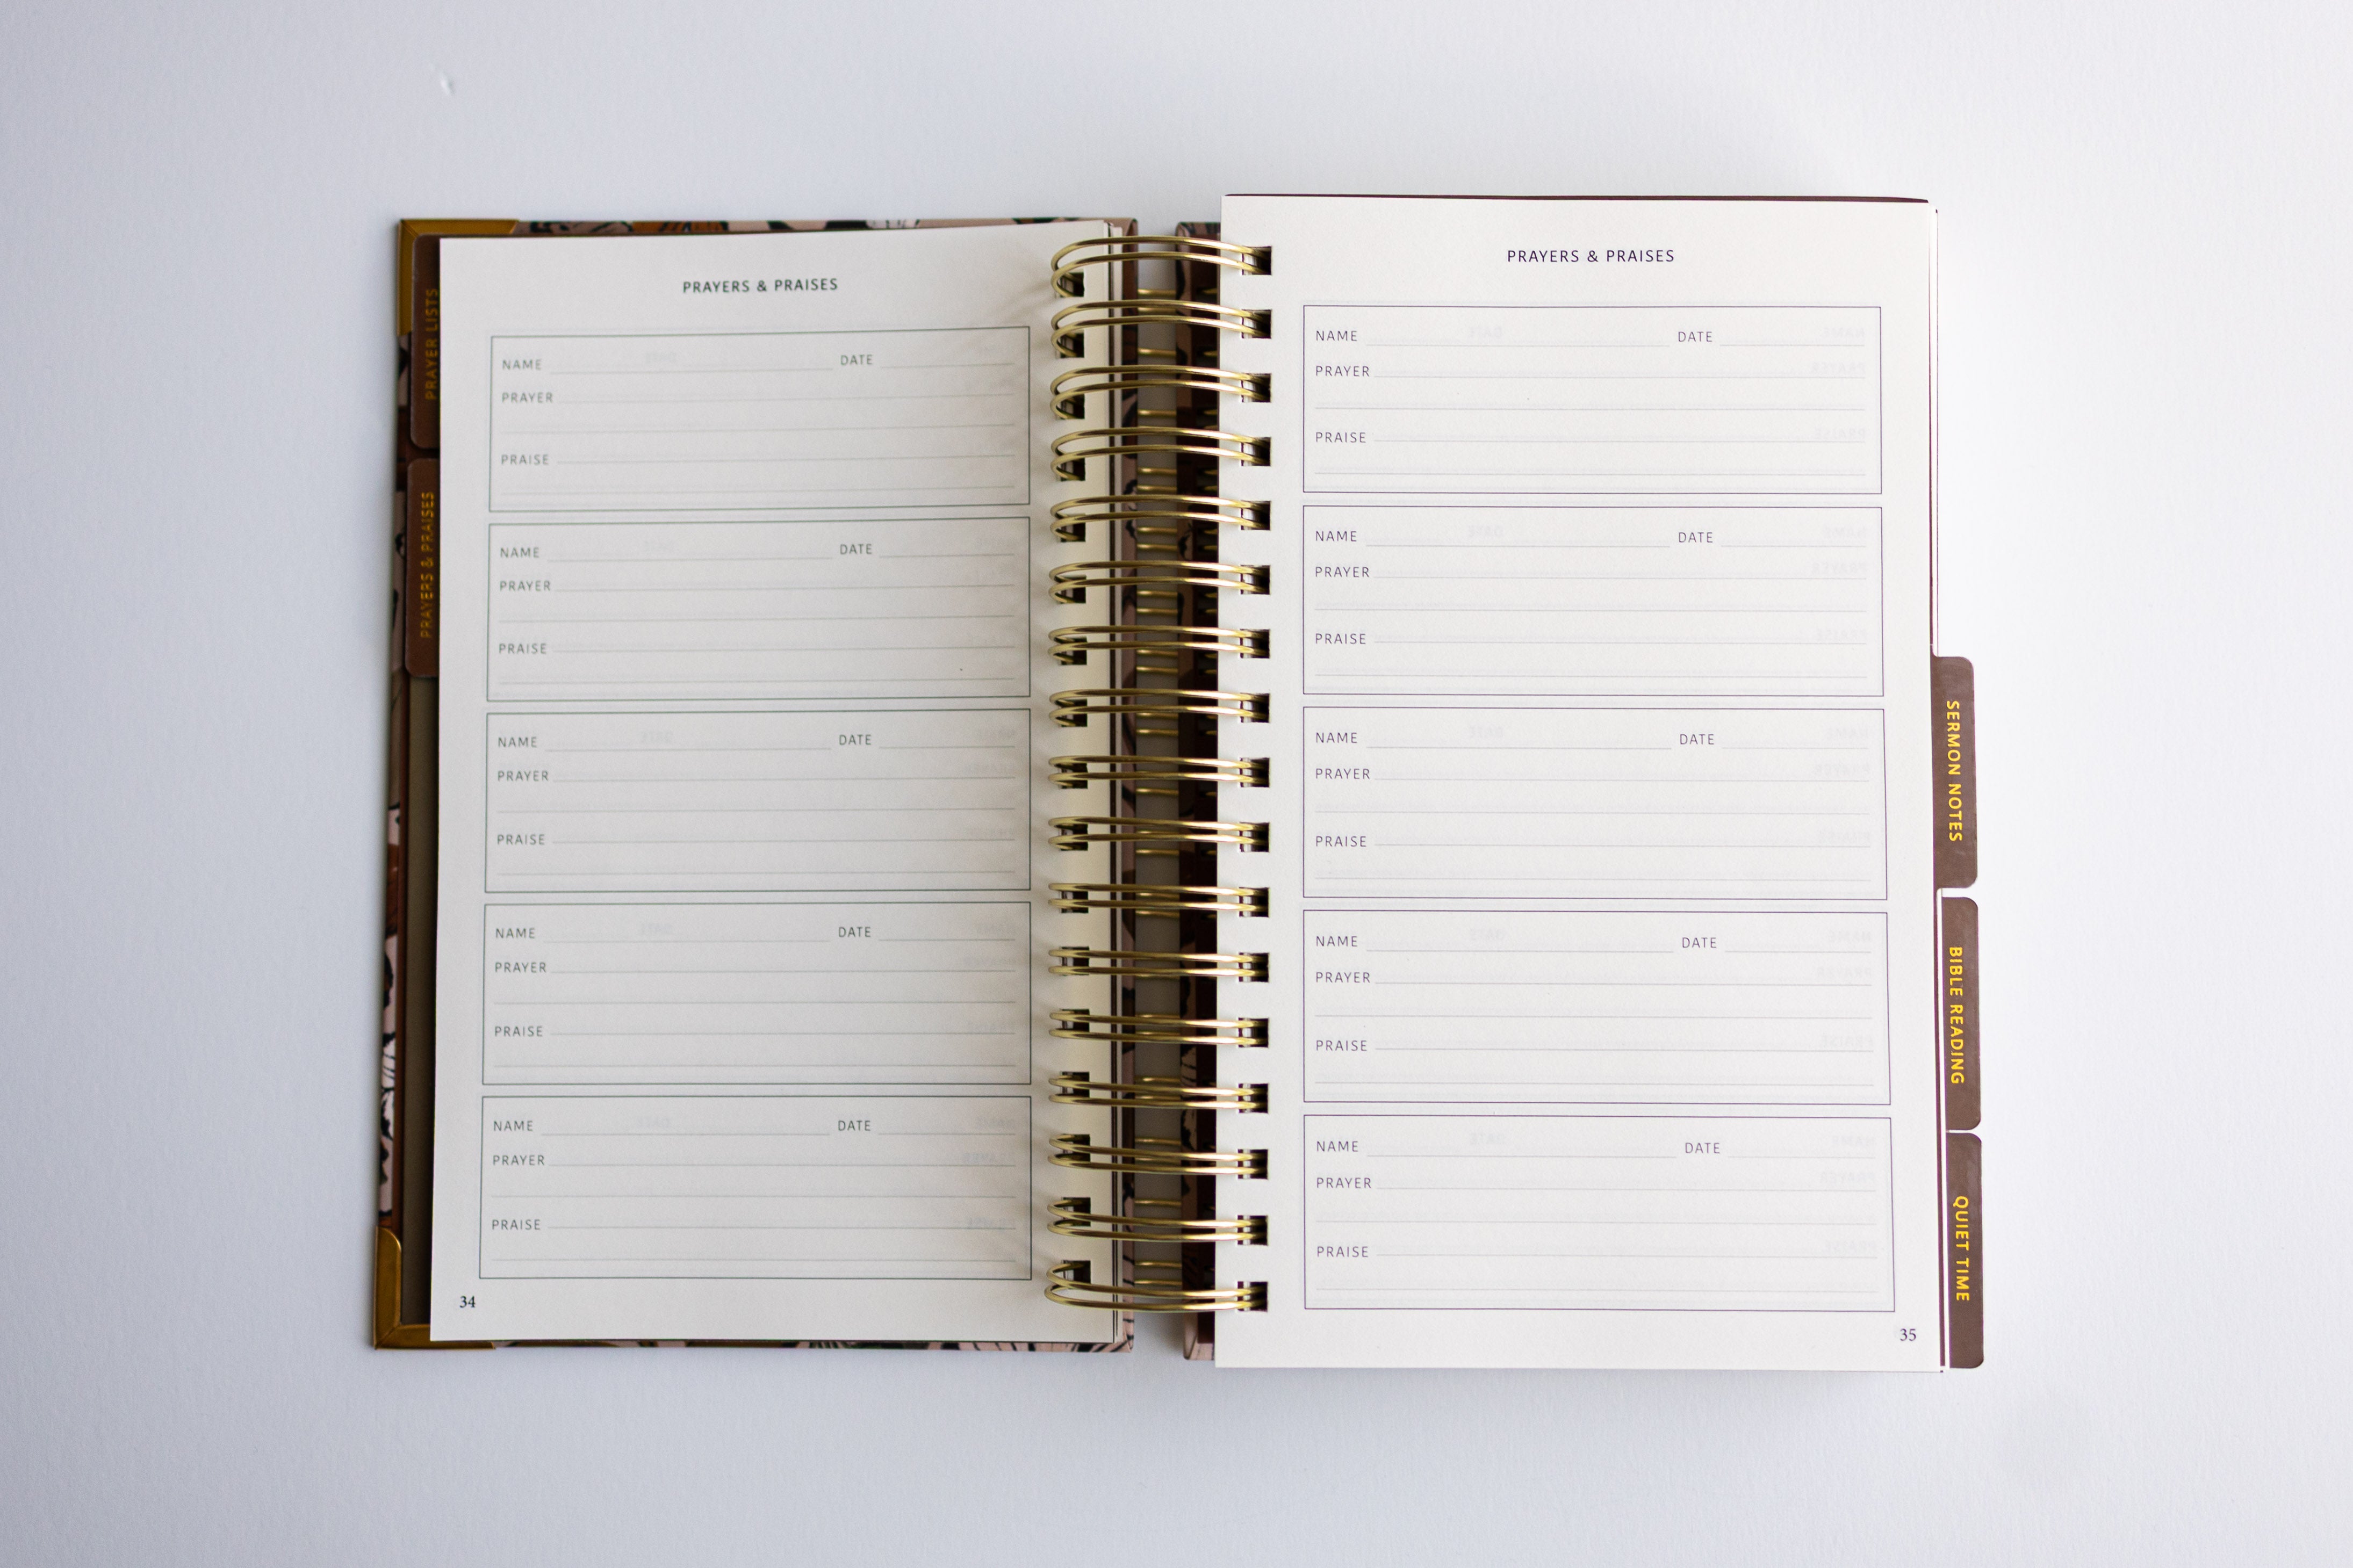 PRAYER LISTS
PRAYERS & PRAISES
PRAYERS & PRAISES
NAME DATE
PRAYER
PRAISE
NAME DATE
PRAYER
PRAISE
NAME DATE
PRAYER
PRAISE
NAME DATE
PRAYER
PRAISE
NAME DATE
PRAYER
PRAISE
34
PRAYERS & PRAISES
NAME DATE
PRAYER
PRAISE
NAME DATE
PRAYER
PRAISE
NAME DATE
PRAYER
PRAISE
NAME DATE
PRAYER
PRAISE
NAME DATE
PRAYER
PRAISE
35
SERMON NOTES
BIBLE READING
QUIET TIME